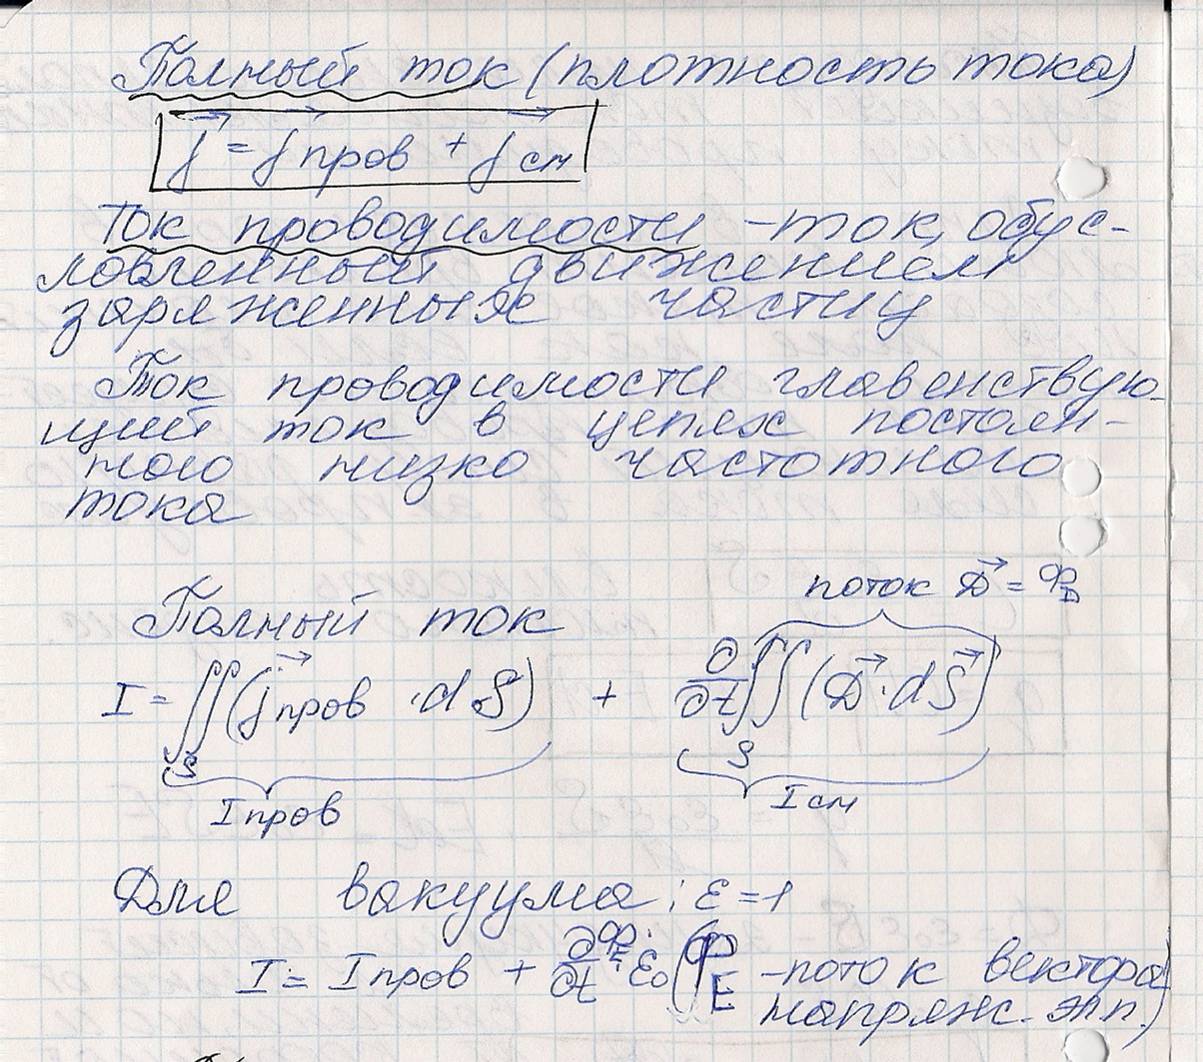 Полный ток (плотность тока)
j⃗ = j⃗ пров + j⃗ см
Ток проводимости – ток, обус-
ловленный движением
заряженных частиц
Ток проводимости главенствую-
щий ток в цепях постоян-
ного низко частотного
тока
поток D⃗ = Ф_D
Полный ток
I = ∬_S (j⃗ пров · dS) + ∂/∂t ∬_S (D⃗ · dS⃗)
I пров I см
Для вакуума: ε = 1
I = I пров + ∂Ф_E/∂t · ε₀ (Ф_E – поток вектора
напряж. эл п.)